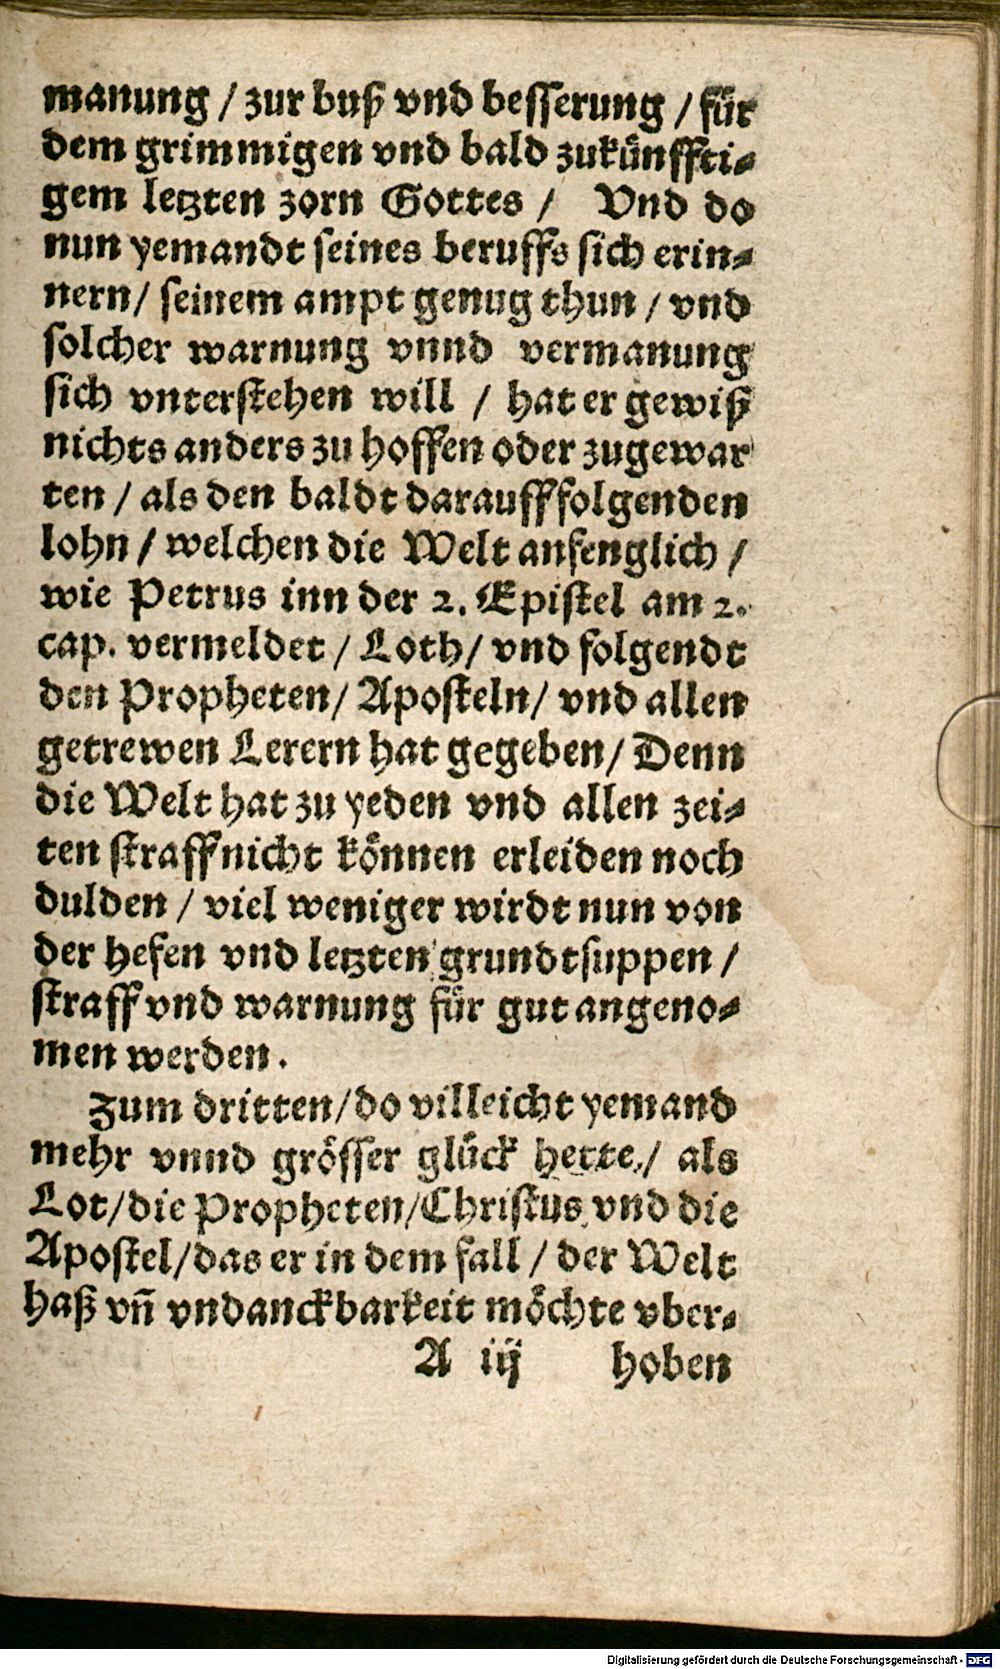 manung / zur buß vnd besserung / für
dem grimmigen vnd bald zukünffti-
gem letzten zorn Gottes / Vnd do
nun yemandt seines beruffs sich erin-
nern / seinem ampt genug thun / vnd
solcher warnung vnnd vermanung
sich vnterstehen will / hat er gewiß
nichts anders zu hoffen oder zugewar
ten / als den baldt darauff folgenden
lohn / welchen die Welt anfenglich /
wie Petrus inn der 2. Epistel am 2.
cap. vermeldet / Loth / vnd folgendt
den Propheten / Aposteln / vnd allen
getrewen Lerern hat gegeben / Denn
die Welt hat zu yeden vnd allen zei-
ten straff nicht können erleiden noch
dulden / viel weniger wirdt nun von
der hefen vnd letzten grundtsuppen /
straff vnd warnung für gut angeno-
men werden.
Zum dritten / do villeicht yemand
mehr vnnd grösser glück hette / als
Lot / die Propheten / Christus vnd die
Apostel / das er in dem fall / der Welt
haß vñ vndanckbarkeit möchte vber-
A iij hoben
Digitalisierung gefördert durch die Deutsche Forschungsgemeinschaft - DFG